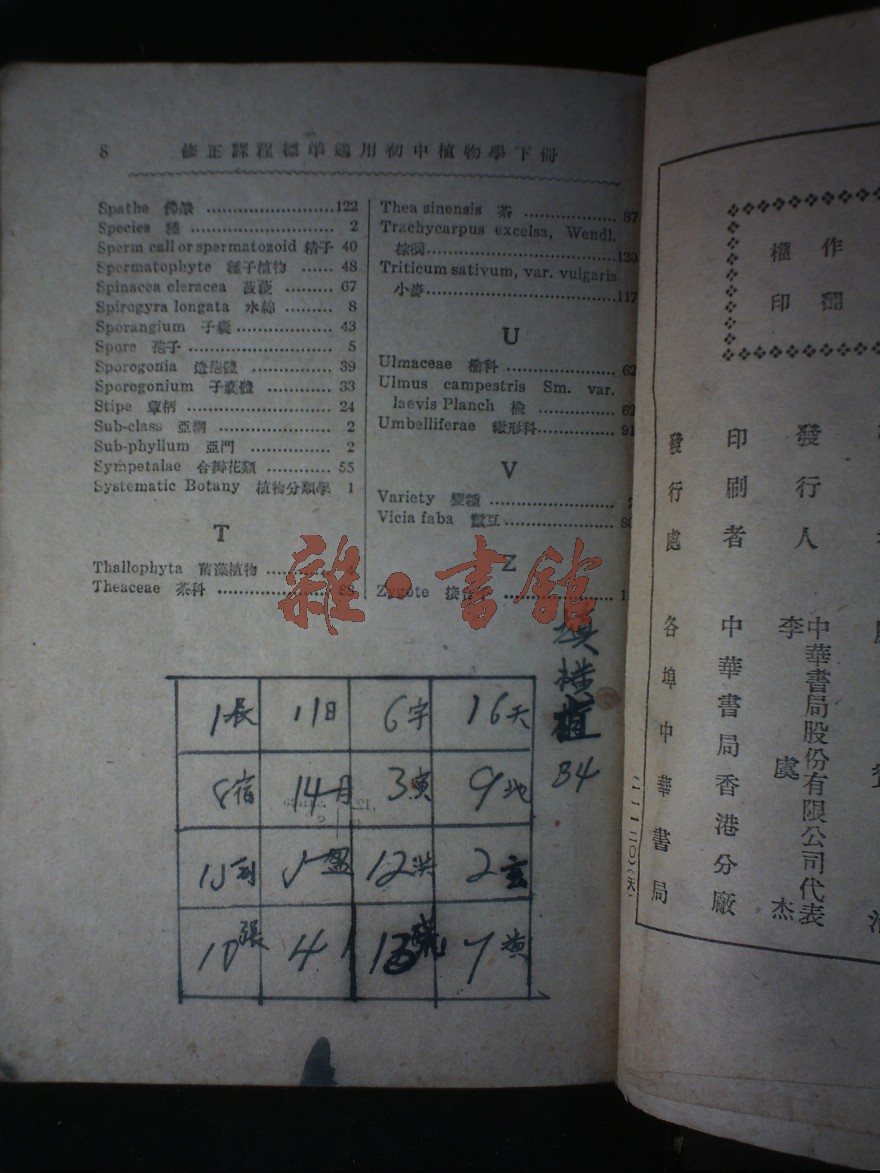 8 修正課程標準適用初中植物學下冊
Spathe 佛燄 ........................122
Species 種 ........................ 2
Sperm call or spermatozoid 精子 40
Spermatophyte 種子植物 ...... 48
Spinacea oleracea 菠薐 ......... 67
Spirogyra longata 水綿 ......... 8
Sporangium 子囊 .................. 43
Spore 孢子 ........................ 5
Sporogonia 造孢體 ............... 39
Sporogonium 子囊體 ............ 33
Stipe 蕈柄 ........................ 24
Sub-class 亞綱 ..................... 2
Sub-phylium 亞門 ............... 2
Sympetalae 合瓣花類 ............ 55
Systematic Botany 植物分類學 1
T
Thallophyta 菌藻植物
Theaceae 茶科 ..................... 88
Thea sinensis 茶 .................. 87
Trachycarpus excelsa, Wendl.
棕櫚 ........................120
Triticum sativum, var. vulgaris
小麥 ........................117
U
Ulmaceae 榆科 ..................... 62
Ulmus campestris Sm. var.
laevis Planch 榆 ............... 62
Umbelliferae 繖形科 ............ 91
V
Variety 變種 .....................
Vicia faba 蠶豆 .................. 80
Z
Zygote 接合子 .....................
雜·書館
橫
直
34
1辰 11日 6宇 16天
8宿 14月 3寅 9地
盈 12洪 2玄
張 4 13荒 7黃
作
權
翻
印
發行人
中華書局股份有限公司代表
李虞杰
印刷者 中華書局香港分廠
發行處 各埠中華書局